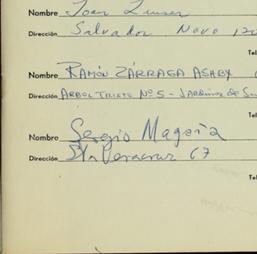 Nombre Joan
Dirección Salvador Novo
Tel
Nombre RAMÓN ZÁRRAGA ASHBY
Dirección ARBOL TRISTE Nº 5 - JARDINES DE
Tel
Nombre Sergio Magaña
Dirección Sta Veracruz 67
Tel